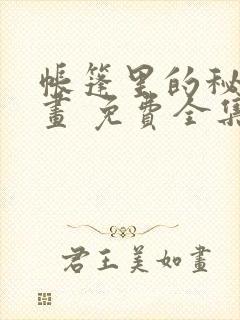 帳篷里的秘
畫 免費全集
君王美如畫